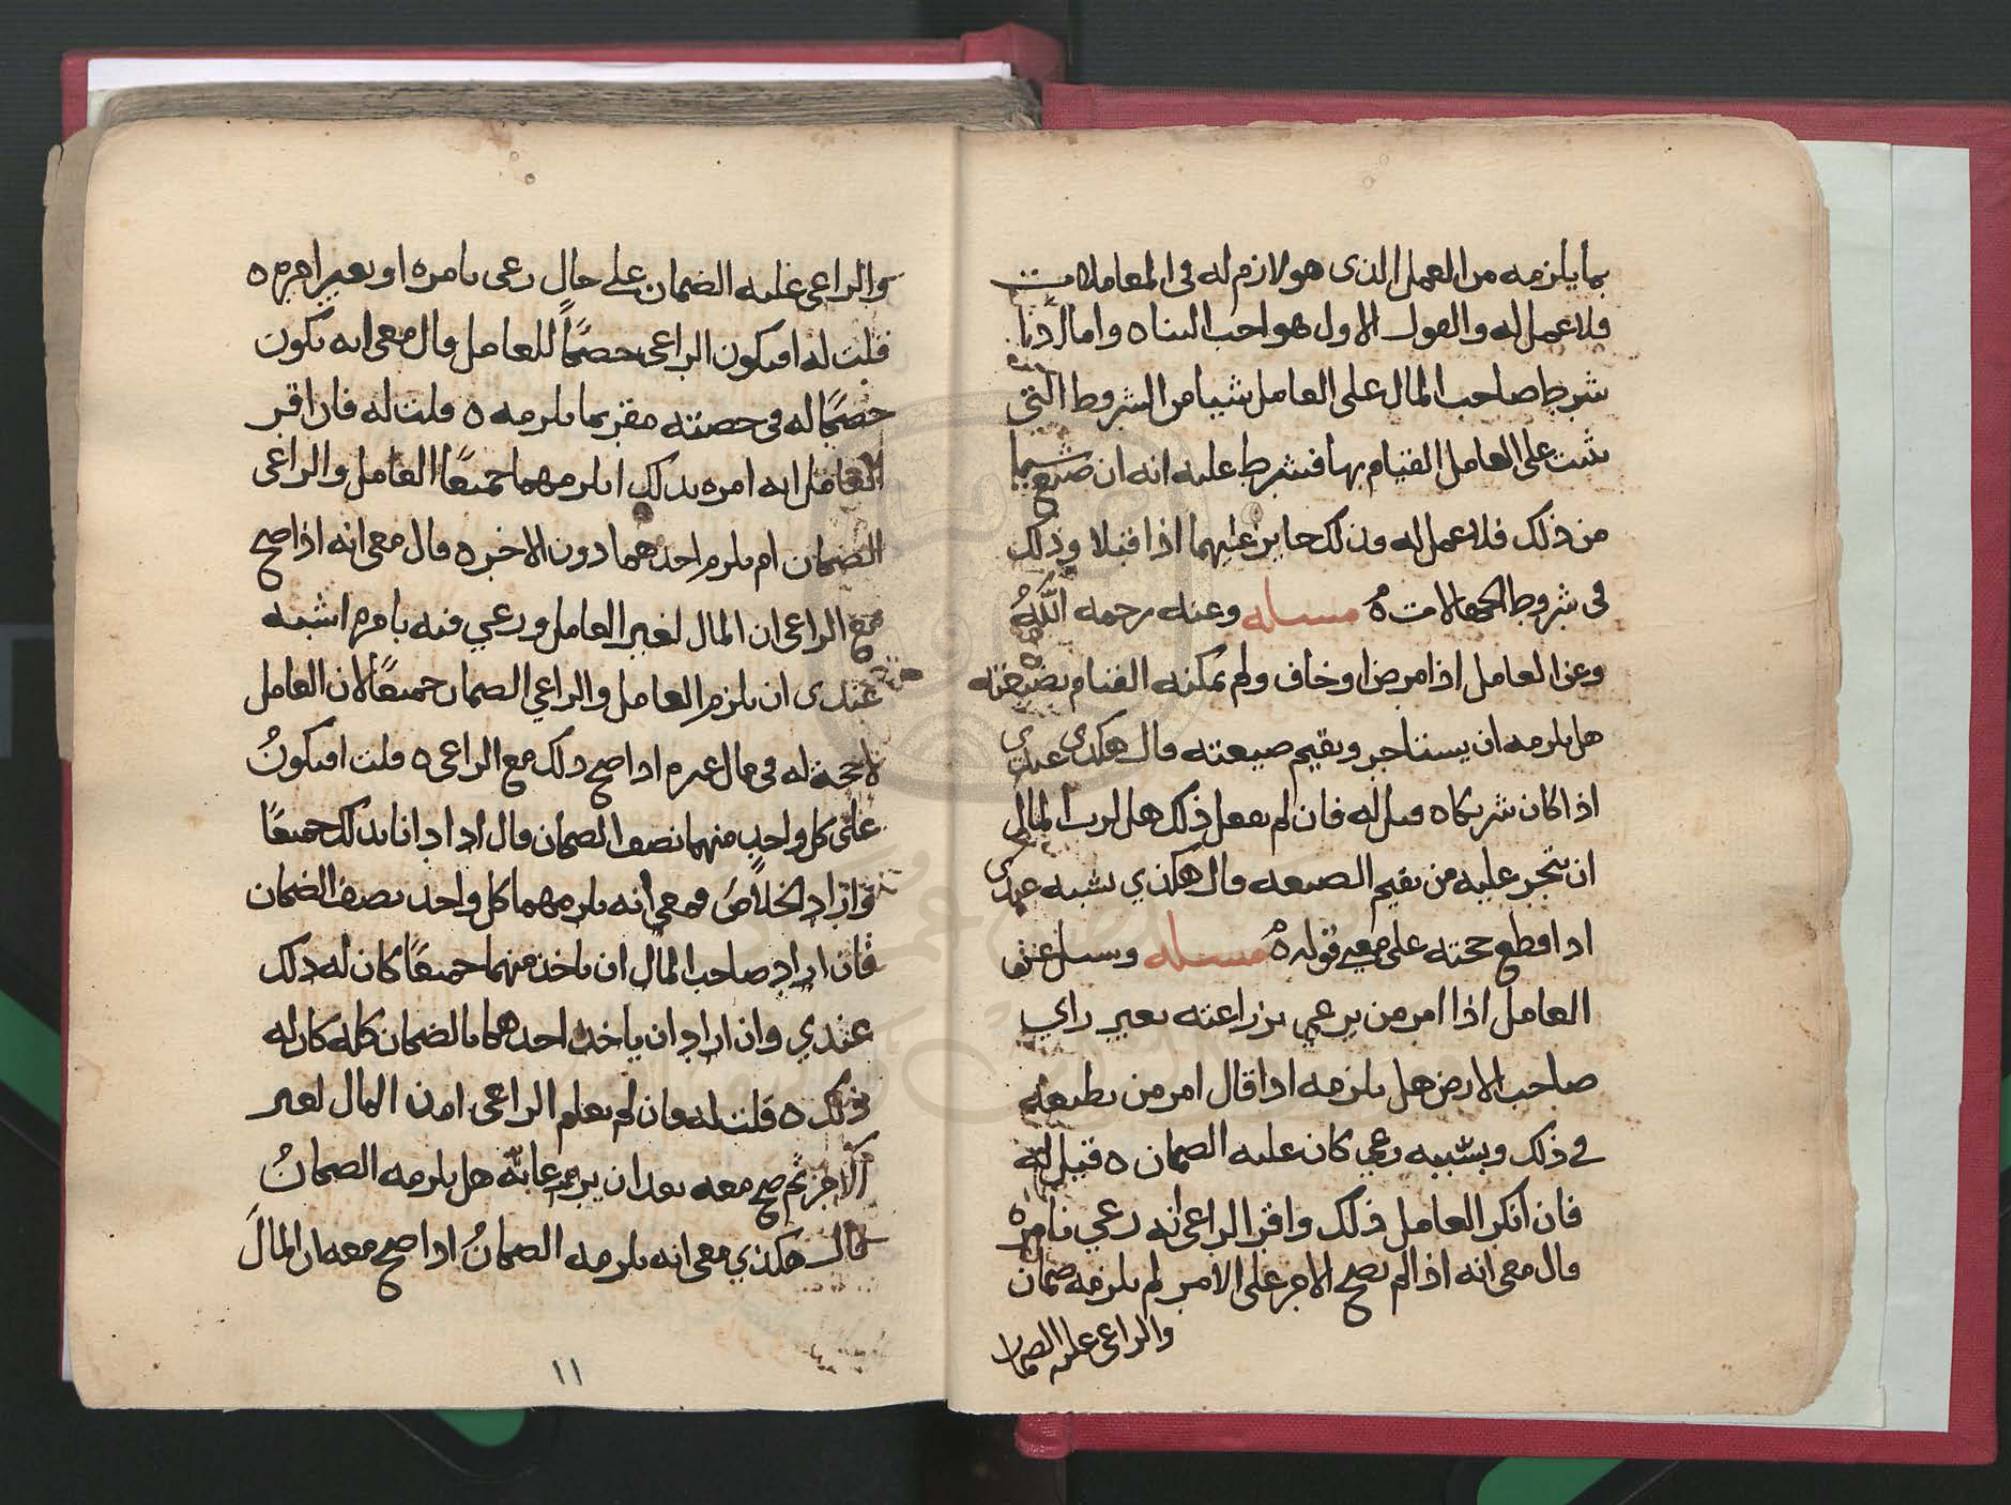 بما يلزمه من العمل الذي هو لازم له في المعاملات
فلا عمل له والقول الاول هو احب الينا ٥ واما اذا
شرط صاحب المال على العامل شيا من الشروط التي
يثبت على العامل القيام بها فشرط عليه انه ان ضيع شيا
من ذلك فلا عمل له فذلك جايز عليهما اذا قبلا وذلك
في شروط الجهالات ٥ مسله وعنه رحمه الله
وعن العامل اذا مرض او خاف ولم يمكنه القيام بضيعته
هل يلزمه ان يستاجر ويقيم ضيعته قال هكذى عندى
اذا كان شريكا ٥ قيل له فان لم يفعل ذلك هل لرب المال
ان يتجر عليه من يقيم الضيعه قال هكذي يشبه عندى
اذا قطع حجته على معنى قوله ٥ مسله وسئل عن
العامل اذا امر من يرعي بزراعته بغير راي
صاحب الارض هل يلزمه اذا قال امر من يطيعه
في ذلك وبسببه رعي كان عليه الضمان ٥ قيل له
فان انكر العامل ذلك واقر الراعي انه رعي بامره
قال معي انه اذا لم يصح الامر على الامر لم يلزمه ضمان
والراعي عليه الضمان
والراعي عليه الضمان على حال رعى بامره او بغير امره ٥
قلت له افيكون الراعي خصمًا للعامل قال معي انه يكون
خصمًا له في حصته مقر بما يلزمه ٥ قلت له فان اقر
العامل انه امره بذلك ايلزمهما جميعًا العامل والراعي
الضمان ام يلزم احدهما دون الاخر ٥ قال معي انه اذا صح
مع الراعي ان المال لغير العامل ورعي فيه بامره اشبه
عندى ان يلزم العامل والراعي الضمان جميعًا لان العامل
لا حجة له في مال غيره اذا صح ذلك مع الراعي ٥ قلت افيكونُ
على كل واحدٍ منهما نصف الضمان قال اذا دانا بذلك جميعًا
وارادا الخلاصَ فمعي انه يلزمهما كل واحد نصف الضمان
فان اراد صاحب المال ان ياخذ منهما جميعًا كان له ذلك
عندي وان اراد ان ياخذ احدهما بالضمان كله كان له
ذلك ٥ قلت له فان لم يعلم الراعي ان المال لغير
الامر ثم صح معه بعد ان يرعى هل يلزمه الضمانُ
قال هكذي معي انه يلزمه الضمانُ اذا صح معه ان المالَ
١١